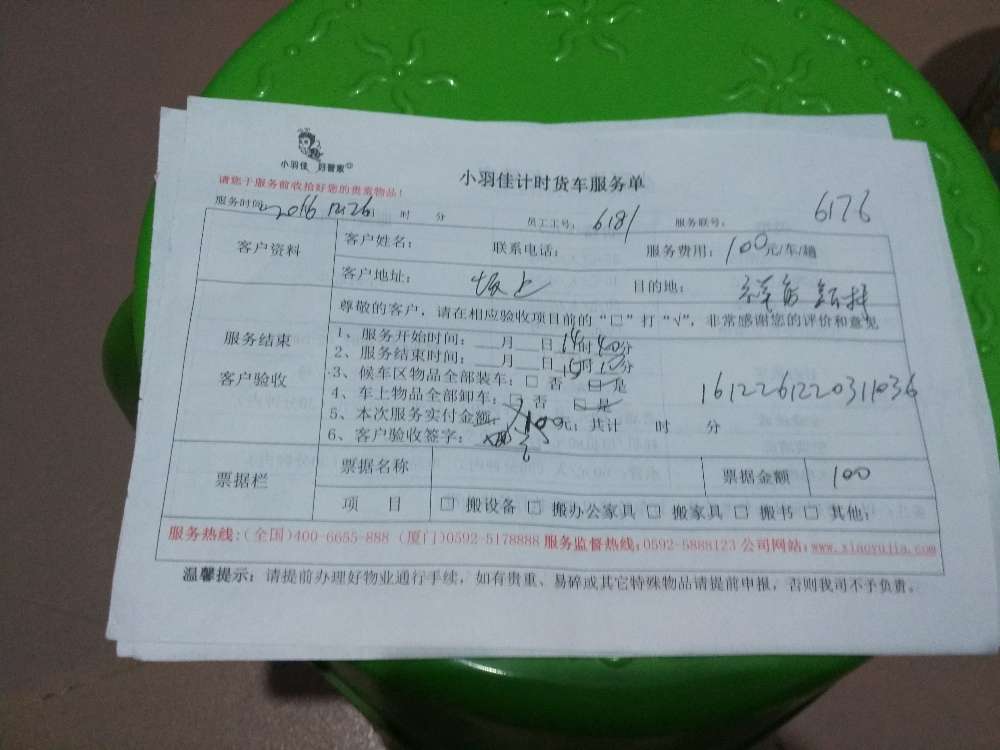 小羽佳 好管家
小羽佳计时货车服务单
请您于服务前收拾好您的贵重物品!
服务时间: 2016 12 26 时 分 员工工号: 6181 服务联号: 6176
客户资料 客户姓名: 联系电话: 服务费用: 100元/车/趟
客户地址: 坂上 目的地:
服务结束 客户验收
尊敬的客户,请在相应验收项目前的“□”打“√”,非常感谢您的评价和意见
1、服务开始时间: __月__日14时40分
2、服务结束时间: __月__日15时10分
3、候车区物品全部装车: □ 否 □ 是
4、车上物品全部卸车: □ 否 □ 是
1612261220311036
5、本次服务实付金额: 100元; 共计 时 分
6、客户验收签字:
票据栏 票据名称 票据金额 100
项 目 □ 搬设备 □ 搬办公家具 □ 搬家具 □ 搬书 □ 其他:
服务热线:(全国)400-6655-888 (厦门)0592-5178888 服务监督热线:0592-5888123 公司网站: www.xiaoyujia.com
温馨提示: 请提前办理好物业通行手续, 如有贵重、易碎或其它特殊物品请提前申报, 否则我司不予负责。